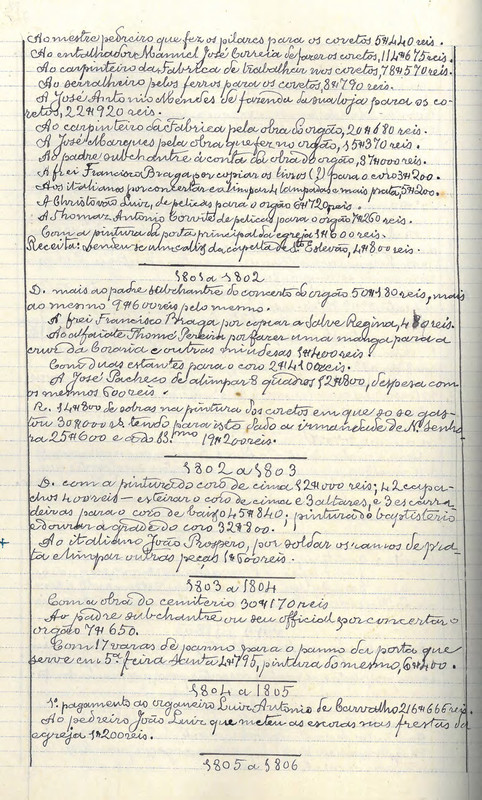 Ao mestre pedreiro que fez os pilares para os coretos 5#440 reis.
Ao entalhador Manuel José Correia de fazer os coretos, 114#675 reis.
Ao carpinteiro da Fabrica de trabalhar nos coretos, 78#570 reis.
Ao serralheiro pelos ferros para os coretos 8#790 reis.
A José Antonio Mendes de fazenda da sua loja para os co-
retos, 22#920 reis.
Ao carpinteiro da Fábrica pela obra do orgão, 20#680 reis.
A José Marques pela obra que fez no orgão, 15#370 reis.
Ao padre subchantre á conta da obra do orgão, 87#000 reis.
A frei Francisco Braga por copiar os livros (?) para o coro 3#200.
Aos italianos por concertar e alimpar 4 lampadas e mais prata, 5#200.
A Christovão Luiz, de pelicas para o orgão 6#720 reis.
A Thomaz Antonio Corvite de pelicas para o orgão 7#260 reis.
Com a pintura da porta principal da egreja 1#600 reis.
Receita: Vendeu-se um caliz da capella de Sto Estevão, 4#800 reis.
1801 a 1802
D. mais ao padre subchantre do concerto do orgão 50#180 reis, mais
ao mesmo 9#600 reis pelo mesmo.
A frei Francisco Braga por copiar a Salve Regina, 480 reis.
Ao alfaiate Thomé Pereira por fazer uma manga para a
cruz da Coraria e outras miudesas 1#400 reis
Com duas estantes para o coro 2#4100 reis.
A José Pacheco de alimpar 8 quadros 12#800, despesa com
os mesmos 600 reis.
R. 14#800 de sobras na pintura dos coretos em que so se gas-
tou 30#000 rs tendo para isto dado a irmandade de Na. Senho-
ra 25#600 e o do Ssmo 19#200 reis.
1802 a 1803
D. com a pintura do coro de cima 12#000 reis; 42 capa-
chos 400 reis — esteirar o coro de cima e 3 altares, e 3 escarra-
deiras para o coro de baixo 45#840; pintura do baptisterio
e dourar a grade do coro 32#800.
Ao italiano João Prospero, por soldar os ramos de pra-
ta e limpar outras peças 1#600 reis.
1803 a 1804
Com a obra do cemiterio 30#170 reis
Ao padre subchantre ou seu official por concertar o
orgão 7#650.
Com 17 varas de panno para o panno da porta que
serve em 5ª feira santa 4#795, pintura do mesmo, 6#400.
1804 a 1805
1º pagamento ao organeiro Luiz Antonio de Carvalho 216#666 reis.
Ao pedreiro João Luiz que meteu as escoras nas frestas da
egreja 1#200 reis.
1805 a 1806